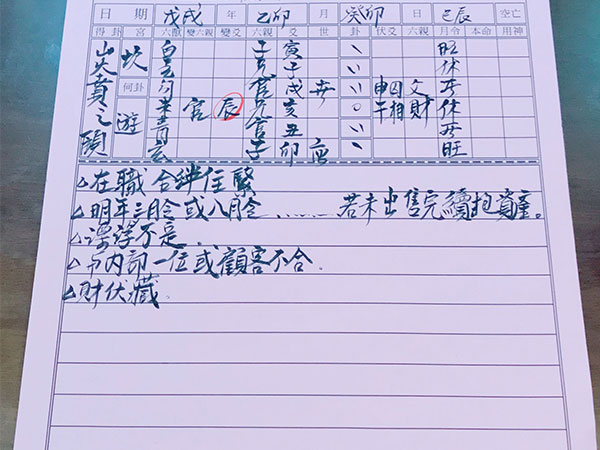 日期 戊戌 年 乙卯 月 癸卯 日 巳辰 空亡
得卦 宮 六獸 變六親 變爻 六親 爻 世 卦 伏爻 六親 月令 本命 用神
山火賁之頤
坎
何卦
遊
官
辰
子兄官兄官子
寅子戌亥丑卯
世
應
申
午相財
旺休
休
旺
△在職 合絆住緊
△明年三月令或八月令......若未出售完續抱資產。
△漂浮不是..
△內部一位或顧客不合.
△財伏藏.